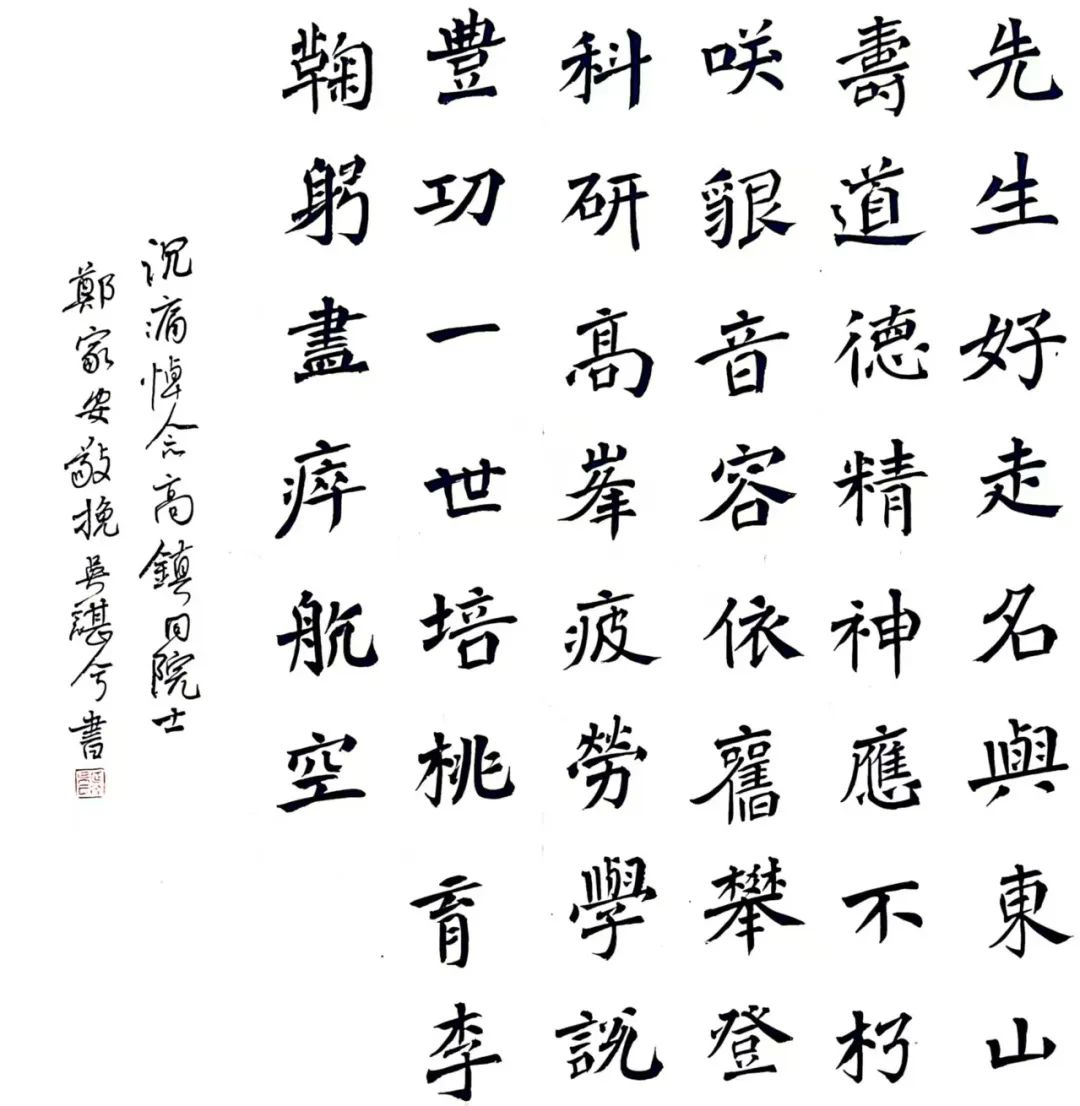 先生好走名與東山
壽道德精神應不朽
咲貌音容依舊攀登
科研高峯疲勞學説
豊功一世培桃育李
鞠躬盡瘁航空
沉痛悼念高鎮同院士
鄭家安敬挽吳諶兮書